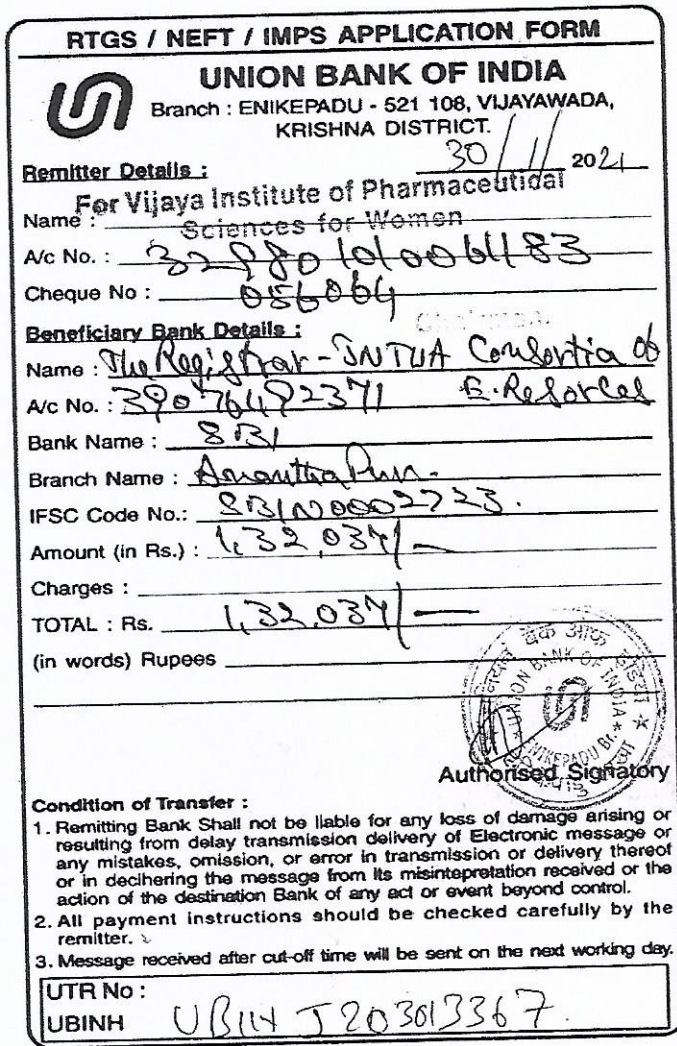 RTGS / NEFT / IMPS APPLICATION FORM
UNION BANK OF INDIA
Branch : ENIKEPADU - 521 108, VIJAYAWADA,
KRISHNA DISTRICT.
30/11/2021
Remitter Details :
For Vijaya Institute of Pharmaceutical
Name : Sciences for Women
A/c No. :
Cheque No : 056064
Chairman
Beneficiary Bank Details :
Name : The Registrar - JNTUA Consortia of
E. Resorces
A/c No. : 39076492371
Bank Name : SBI
Branch Name : Ananthapur.
IFSC Code No.: SBIN0002723.
Amount (in Rs.) : 1,32,037/-
Charges :
TOTAL : Rs. 1,32,037/-
(in words) Rupees
यूनियन बैंक ऑफ इंडिया
UNION BANK OF INDIA
ENIKEPADU Br.
Authorised Signatory
Condition of Transfer :
1. Remitting Bank Shall not be liable for any loss of damage arising or
resulting from delay transmission delivery of Electronic message or
any mistakes, omission, or error in transmission or delivery thereof
or in decihering the message from its misintepretation received or the
action of the destination Bank of any act or event beyond control.
2. All payment instructions should be checked carefully by the
remitter.
3. Message received after cut-off time will be sent on the next working day.
UTR No :
UBINH UBINH J203013367.